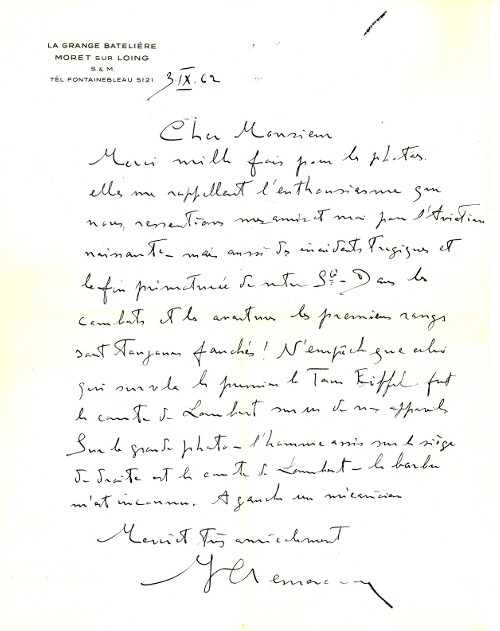 LA GRANGE BATELIÈRE
MORET SUR LOING
S & M.
TÉL FONTAINEBLEAU 5121
3 IX. 62
Cher Monsieur
Merci mille fois pour les photos.
elles me rappellent l'enthousiasme que
nous ressentions mes amis et moi pour l'Aviation
naissante – mais aussi des incidents tragiques et
la fin prématurée de notre Sté – Dans les
combats et les aventures les premiers rangs
sont toujours fauchés ! N'empêche que celui
qui survola le premier la Tour Eiffel fut
le comte de Lambert sur un de nos appareils
Sur la grande photo – l'homme assis sur le siège
de droite est le comte de Lambert – le barbu
m'est inconnu. A gauche un mécanicien
Merci et très amicalement